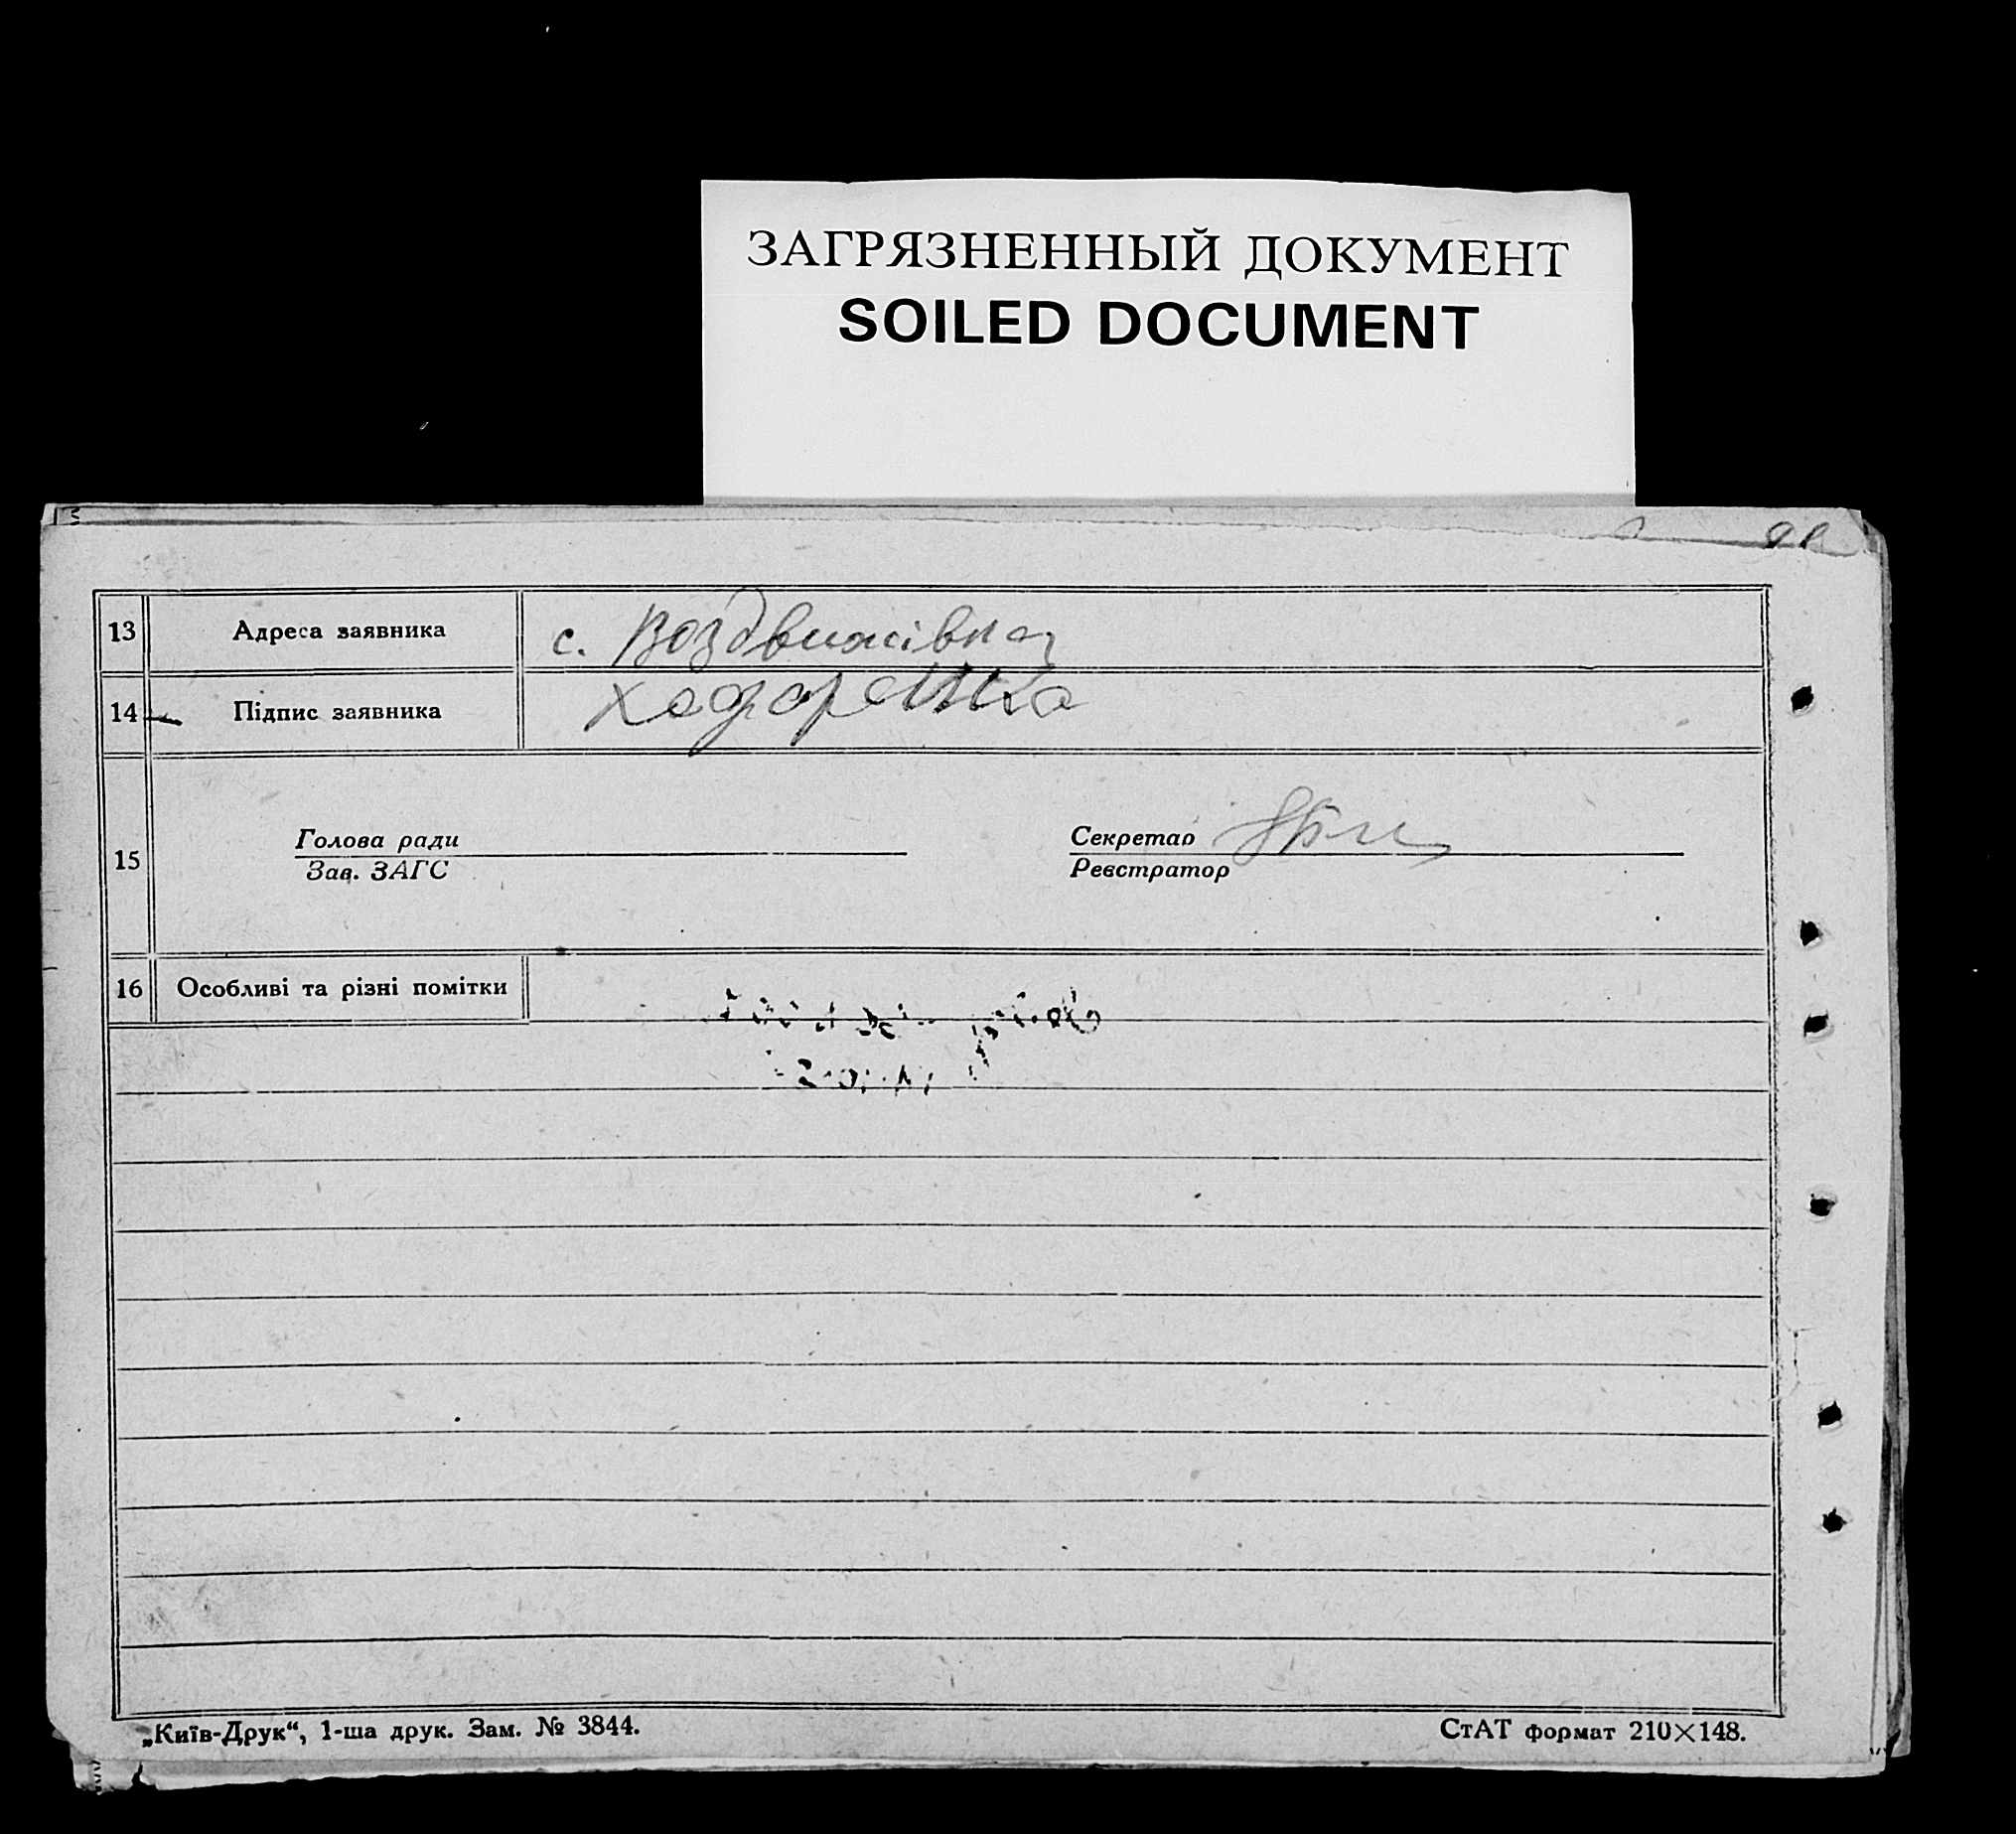 ЗАГРЯЗНЕННЫЙ ДОКУМЕНТ
SOILED DOCUMENT
13 Адреса заявника с. Воздвижівка
14 Підпис заявника
15 Голова ради Секретар
Зав. ЗАГС Реєстратор
16 Особливі та різні помітки
„Київ-Друк“, 1-ша друк. Зам. № 3844. СтАТ формат 210×148.